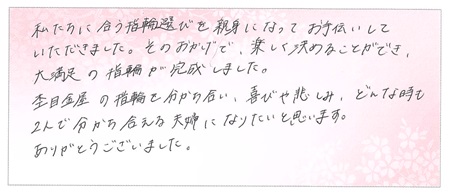 私たちに合う指輪選びを親身になってお手伝いして
いただきました。そのおかげで、楽しく決めることができ、
大満足の指輪が完成しました。
杢目金屋の指輪を分かち合い、喜びや悲しみ、どんな時も
2人で分かち合える夫婦になりたいと思います。
ありがとうございました。